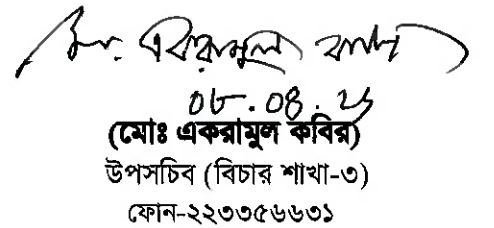 মোঃ একরামুল কবির
(মোঃ একরামুল কবির)
উপসচিব (বিচার শাখা-৩)
ফোন-২২৩৩৫৬৬৩১